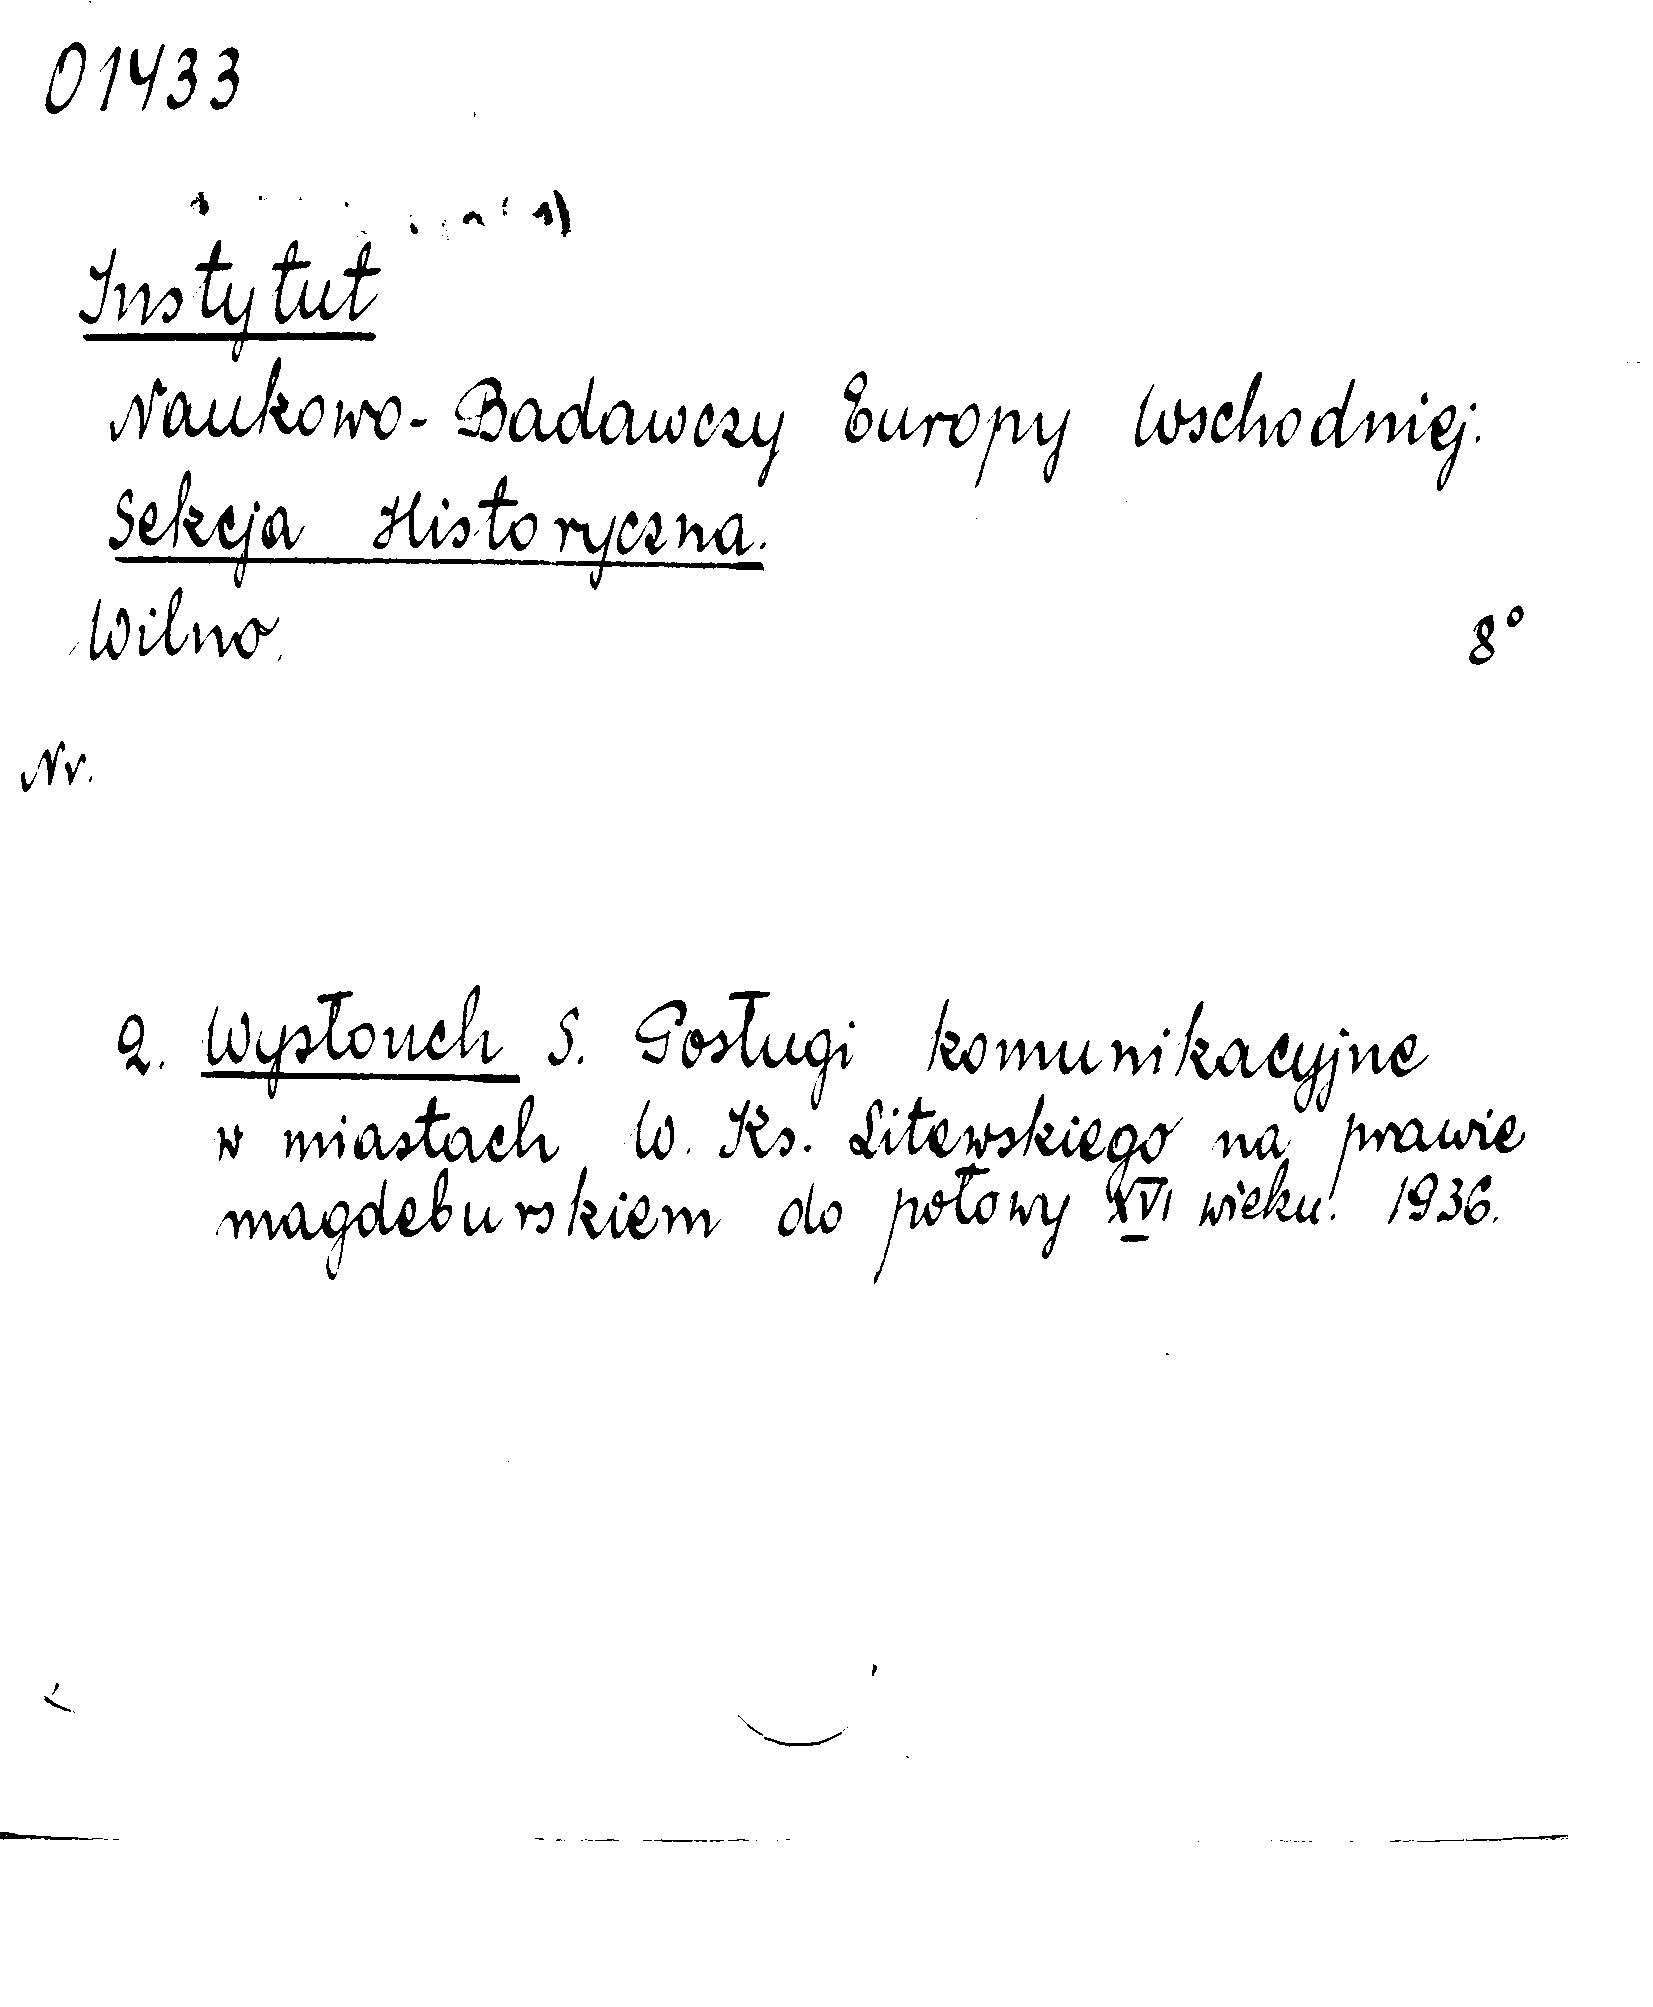 01433
Instytut
Naukowo-Badawczy Europy Wschodniej.
Sekcja Historyczna.
Wilno. 8°
Nr.
2. Wysłouch S. Posługi komunikacyjne
w miastach W. Ks. Litewskiego na prawie
magdeburskiem do połowy XVI wieku. 1936.